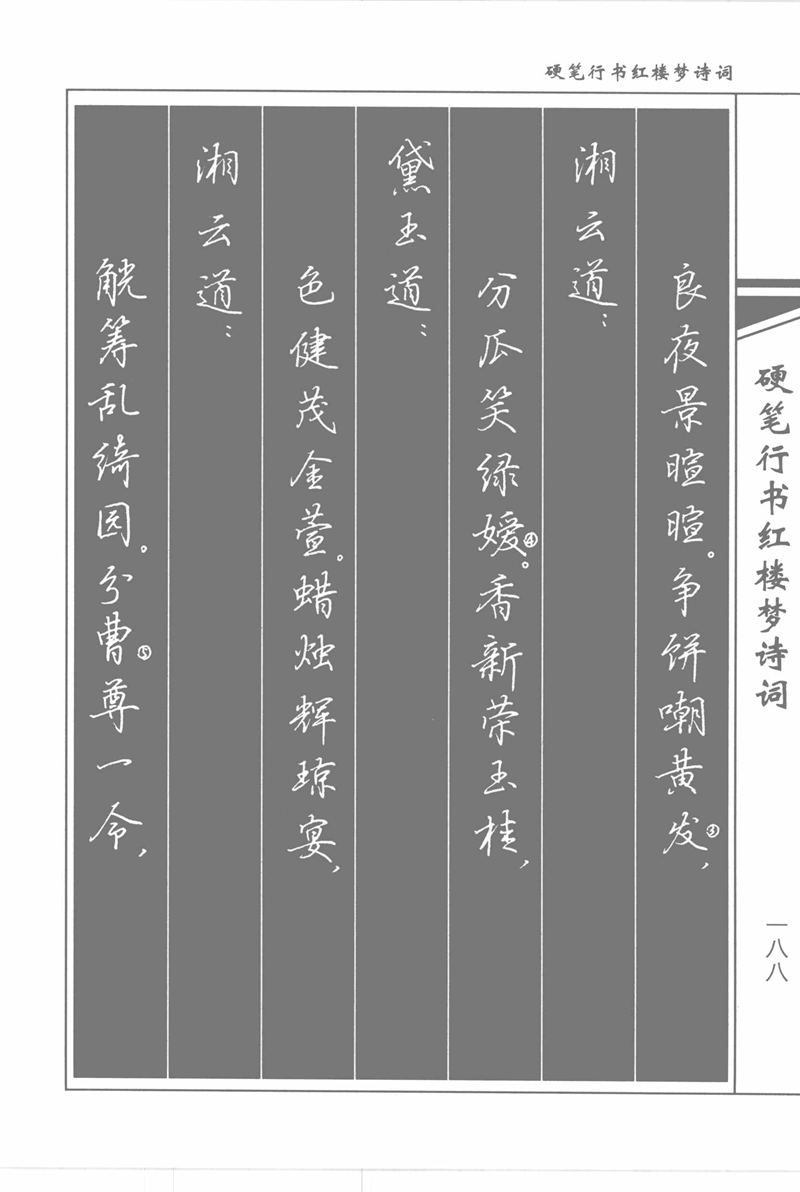 硬笔行书红楼梦诗词
良夜景暄暄。争饼嘲黄发③，
湘云道：
分瓜笑绿媛④。香新荣玉桂，
黛玉道：
色健茂金萱。蜡烛辉琼宴，
湘云道：
觥筹乱绮园。分曹⑤尊一令，
硬笔行书红楼梦诗词
一八八